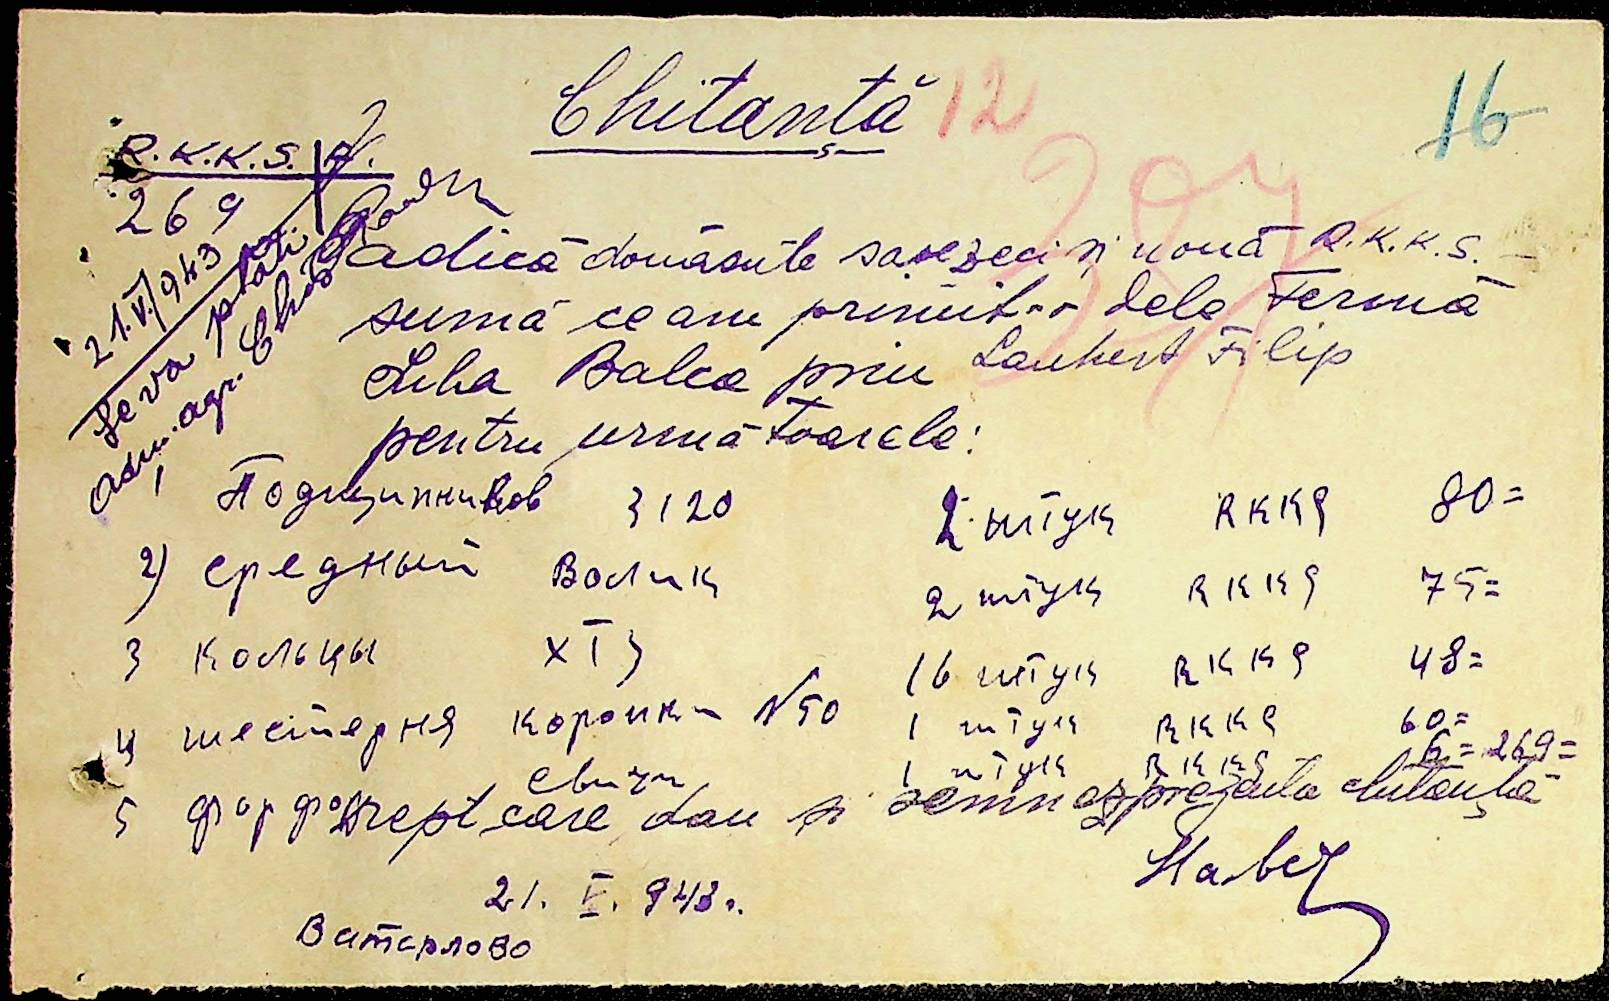 Chitanță 12 16
R.K.K.S.
269
21.V./943
Se va plăti
adm. agr.
adică douăsute șasezeci și nouă R.K.K.S.
sumă ce am primit-o dela Fermă
Liba Balca prin Lambert Filip
pentru următoarele:
1 Подщипников 3120 2 штук RKKS 80=
2) средный Волик 2 штук RKKS 75=
3 кольцы ХТЗ 16 штук RKKS 48=
4 шестерня коронки N 50 1 штук RKKS 60=
5 форфор свичи 1 штук RKKS 6= 269=
Drept care dau și semnez prezenta chitanță
21. V. 943.
Ватарлово